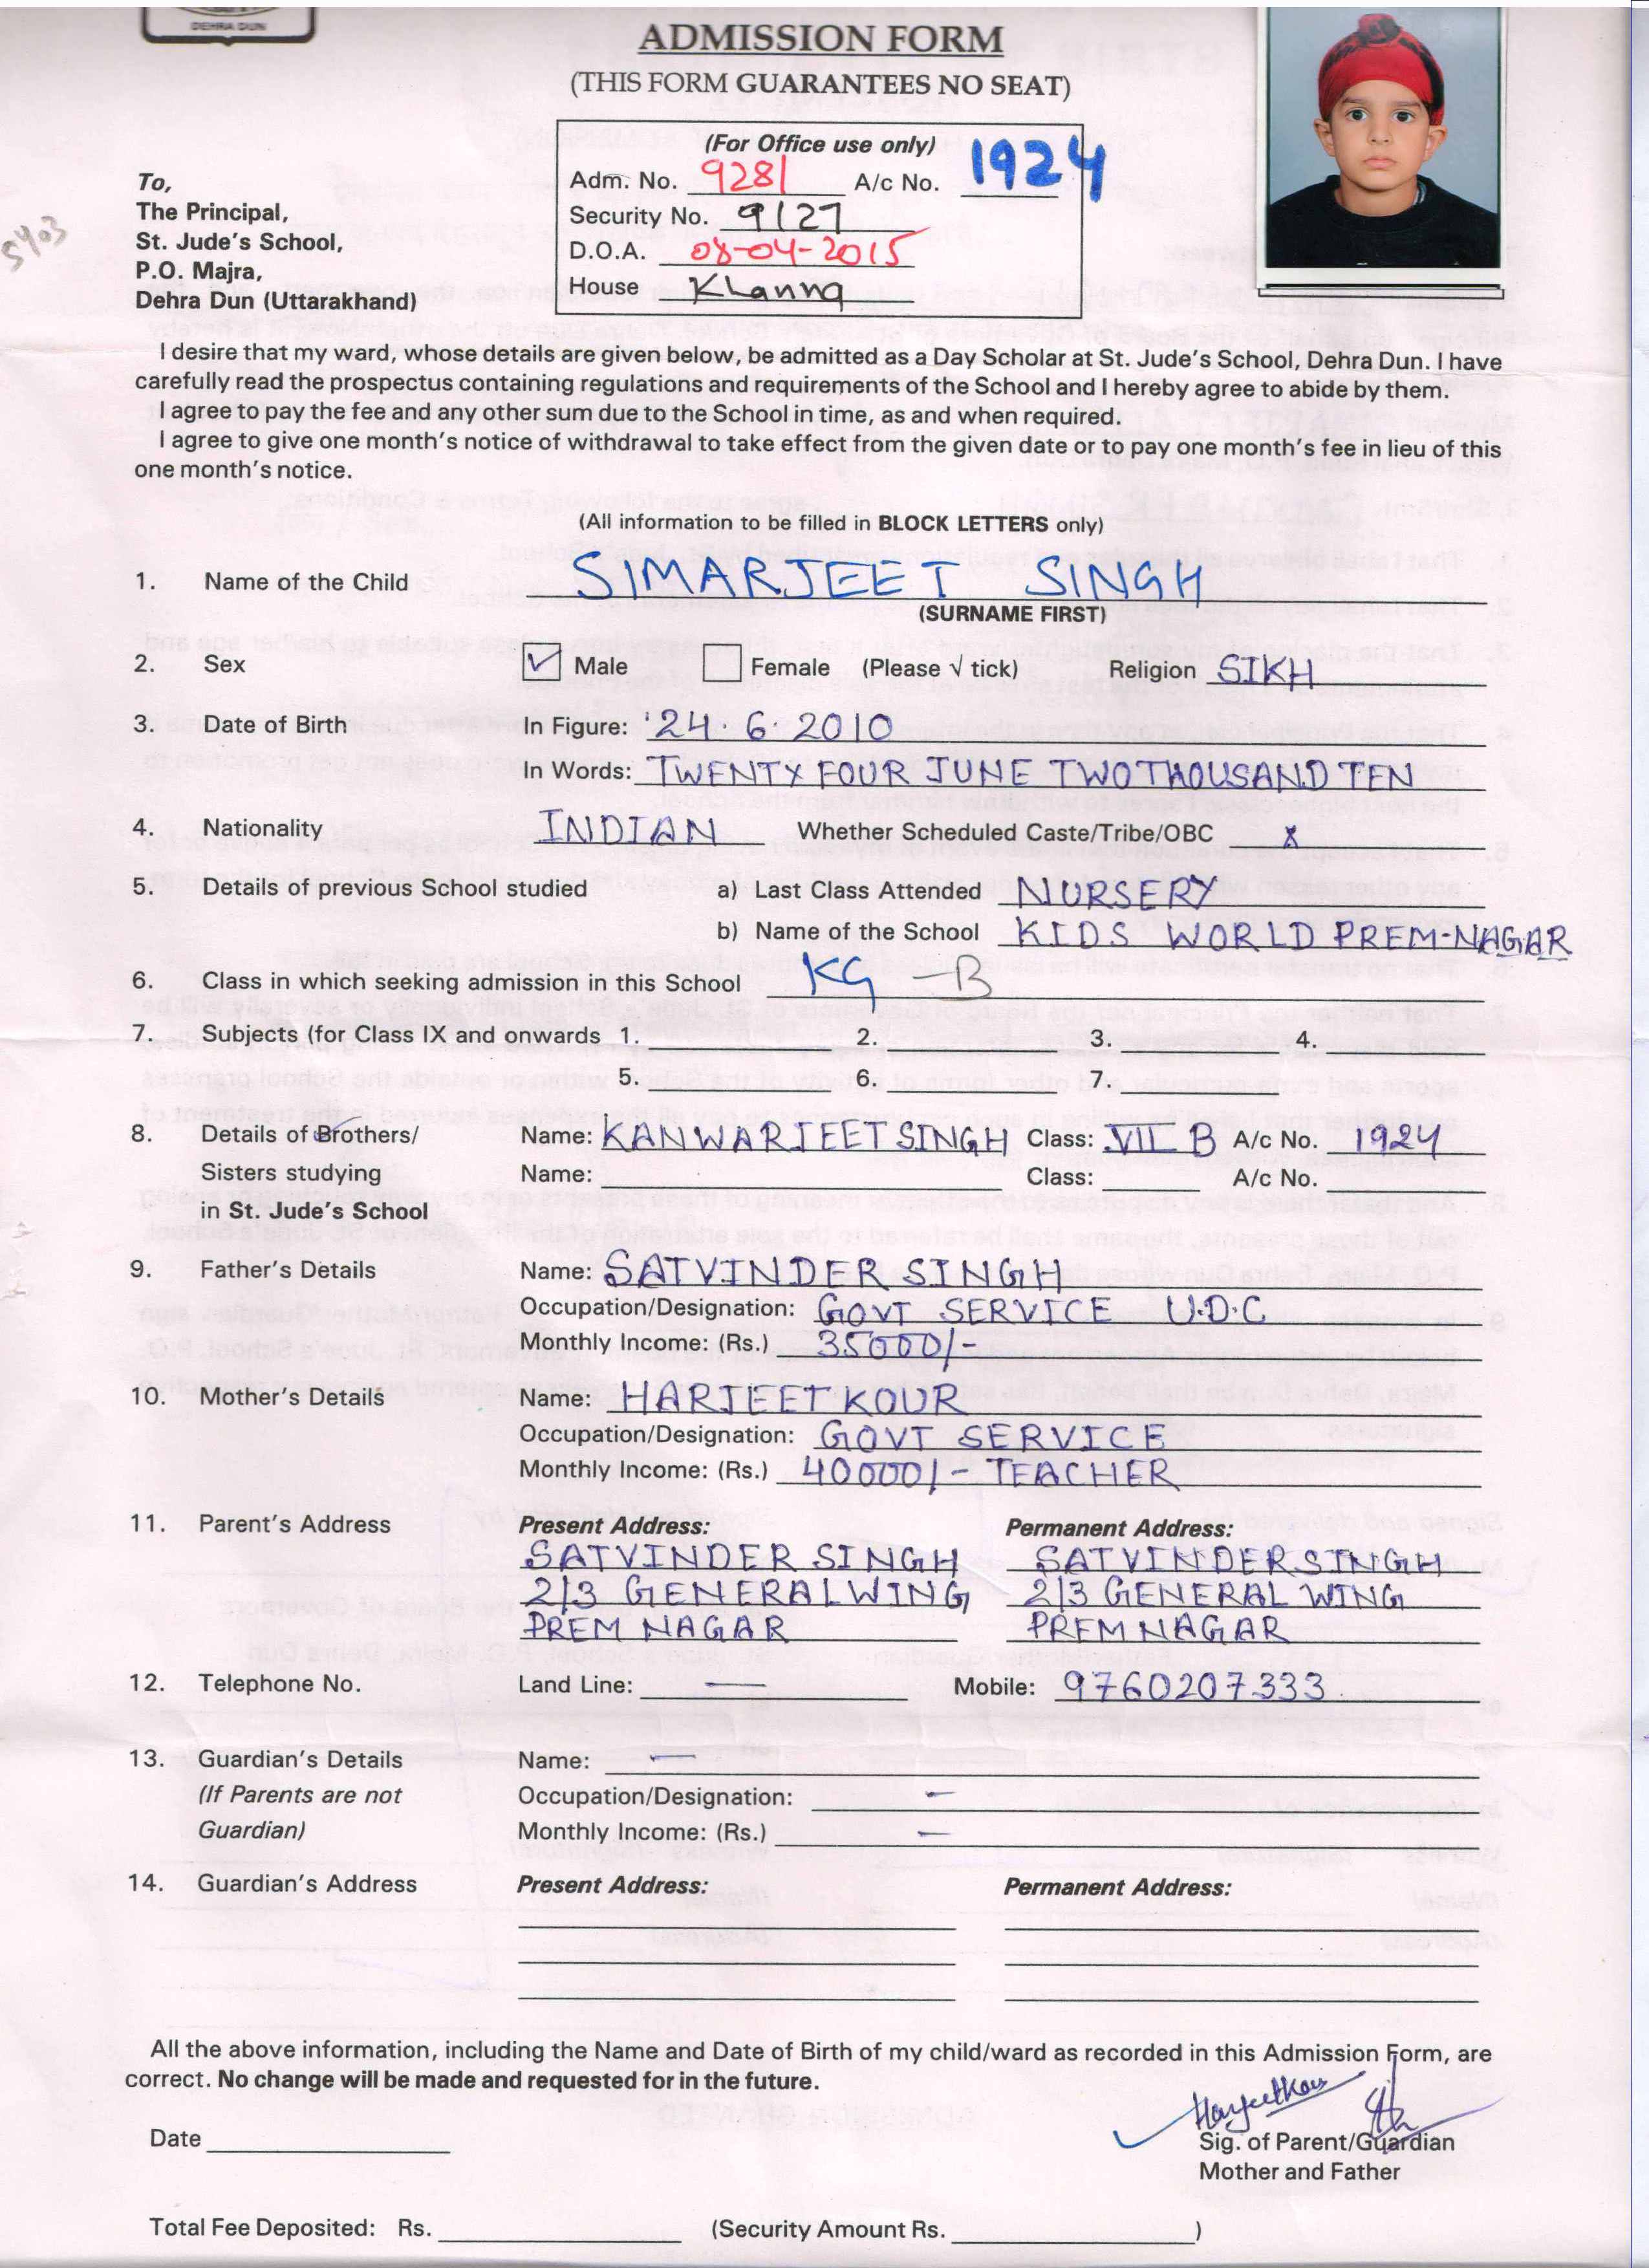 DEHRA DUN
ADMISSION FORM
(THIS FORM GUARANTEES NO SEAT)
(For Office use only)
Adm. No. 9281 A/c No. 1924
Security No. 9127
D.O.A. 08-04-2015
House Khanna
5403
To,
The Principal,
St. Jude's School,
P.O. Majra,
Dehra Dun (Uttarakhand)
I desire that my ward, whose details are given below, be admitted as a Day Scholar at St. Jude's School, Dehra Dun. I have
carefully read the prospectus containing regulations and requirements of the School and I hereby agree to abide by them.
I agree to pay the fee and any other sum due to the School in time, as and when required.
I agree to give one month's notice of withdrawal to take effect from the given date or to pay one month's fee in lieu of this
one month's notice.
(All information to be filled in BLOCK LETTERS only)
1. Name of the Child SIMARJEET SINGH
(SURNAME FIRST)
2. Sex ✓ Male Female (Please √ tick) Religion SIKH
3. Date of Birth In Figure: 24·6·2010
In Words: TWENTY FOUR JUNE TWO THOUSAND TEN
4. Nationality INDIAN Whether Scheduled Caste/Tribe/OBC x
5. Details of previous School studied a) Last Class Attended NURSERY
b) Name of the School KIDS WORLD PREM-NAGAR
6. Class in which seeking admission in this School KG - B
7. Subjects (for Class IX and onwards 1. 2. 3. 4.
5. 6. 7.
8. Details of Brothers/ Name: KANWARJEET SINGH Class: VII B A/c No. 1924
Sisters studying Name: Class: A/c No.
in St. Jude's School
9. Father's Details Name: SATVINDER SINGH
Occupation/Designation: GOVT SERVICE U.D.C
Monthly Income: (Rs.) 35000/-
10. Mother's Details Name: HARJEET KOUR
Occupation/Designation: GOVT SERVICE
Monthly Income: (Rs.) 40000/- TEACHER
11. Parent's Address Present Address: Permanent Address:
SATVINDER SINGH SATVINDER SINGH
2/3 GENERAL WING 2/3 GENERAL WING
PREM NAGAR PREM NAGAR
12. Telephone No. Land Line: — Mobile: 9760207333
13. Guardian's Details Name: —
(If Parents are not Occupation/Designation: —
Guardian) Monthly Income: (Rs.) —
14. Guardian's Address Present Address: Permanent Address:
All the above information, including the Name and Date of Birth of my child/ward as recorded in this Admission Form, are
correct. No change will be made and requested for in the future.
Harjeetkour
Date Sig. of Parent/Guardian
Mother and Father
Total Fee Deposited: Rs. (Security Amount Rs. )